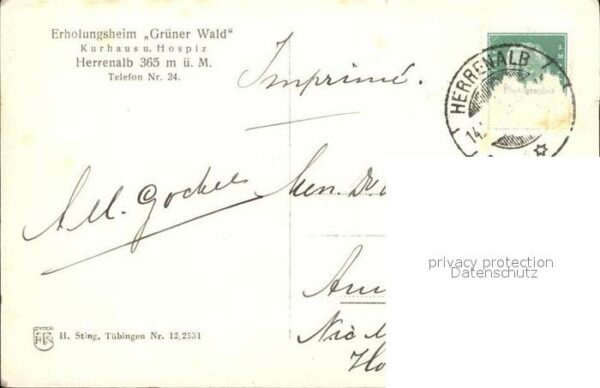 Erholungsheim „Grüner Wald"
Kurhaus u. Hospiz
Herrenalb 365 m ü. M.
Telefon Nr. 24.
Imprimé.
HERRENALB
14.
Photographie
A.M. Gockel
Men. Dr.
privacy protection
Datenschutz
H. Sting, Tübingen Nr. 12,2531